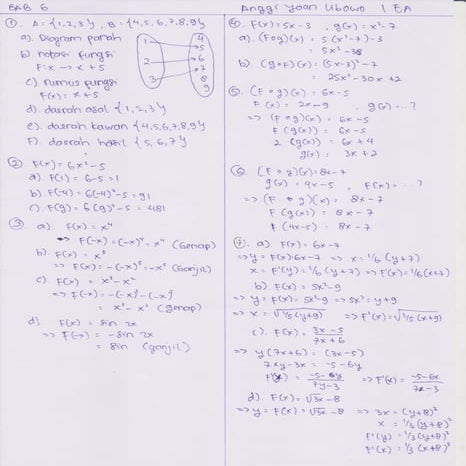 BAB 6
Anggi Yoan Ubowo 1 EA
①. A = {1,2,3}, B = {4,5,6,7,8,9}
a) Diagram panah
1 2 3
4 5 6 7 8 9
b) notasi fungsi
F: x → x + 5
c) rumus fungsi
F(x) = x + 5
d). daerah asal {1,2,3}
e). daerah kawan {4,5,6,7,8,9}
F) daerah hasil {5,6,7}
② F(x) = 6x² - 5
a). F(1) = 6 - 5 = 1
b). F(-4) = 6(-4)² - 5 = 91
c). F(9) = 6(9)² - 5 = 481
③ a). F(x) = x⁴
⇒ F(-x) = (-x)⁴ = x⁴ (Genap)
b). F(x) = x⁵
⇒ F(-x) = (-x)⁵ = -x⁵ (Ganjil)
c). F(x) = x³ - x²
⇒ F(-x) =
= x² - x² (genap)
d) F(x) = sin 2x
⇒ F(-x) = -sin 2x
= sin (ganjil)
④. F(x) = 5x - 3 , g(x) = x² - 7
a). (Fog)(x) = 5(x² - 7) - 3
= 5x² - 38
b) (goF)(x) = (5x - 3)² - 7
= 25x² - 30x + 2
⑤. (F o g)(x) = 6x - 5
F(x) = 2x - 9 , g(x) = ..?
⇒ (F o g)(x) = 6x - 5
F(g(x)) = 6x - 5
2(g(x)) = 6x + 4
g(x) = 3x + 2
⑥. (F o g)(x) = 8x - 7
g(x) = 4x - 5 , F(x) = ...?
⇒ (F o g)(x) = 8x - 7
F(g(x)) = 8x - 7
F(4x - 5) = 8x - 7
⑦. a) F(x) = 6x - 7
⇒ y = F(x) = 6x - 7 ⇒ x = 1/6 (y + 7)
x = F'(y) = 1/6 (y + 7) ⇒ F'(x) = 1/6 (x + 7)
b). F(x) = 5x² - 9
⇒ y = F(x) = 5x² - 9 ⇒ 5x² = y + 9
x = √1/5 (y + 9) ⇒ F'(x) = √1/5 (x + 9)
c). F(x) = 3x - 5 / 7x + 6
⇒ y(7x + 6) = (3x - 5)
7xy - 3x = -5 - 6y
F'(x) = -5 - 6y / 7y - 3 ⇒ F'(x) = -5 - 6x / 7x - 3
d). F(x) = √3x - 8
⇒ y = F(x) = √3x - 8 ⇒ 3x = (y + 8)²
x = 1/3 (y + 8)²
F'(y) = 1/3 (y + 8)²
F'(x) = 1/3 (x + 8)²